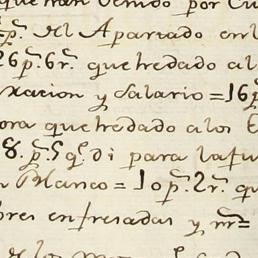 que han Venido por Cu
p.s del Apartado en l
26p.s 6r.s que he dado al
xacion y Salario = 16p
ora que he dado a los E
8.p.s 5 q.e di para la fu
n Blanco = 10p.s 2r.s qu
bres entresadas y m.s =